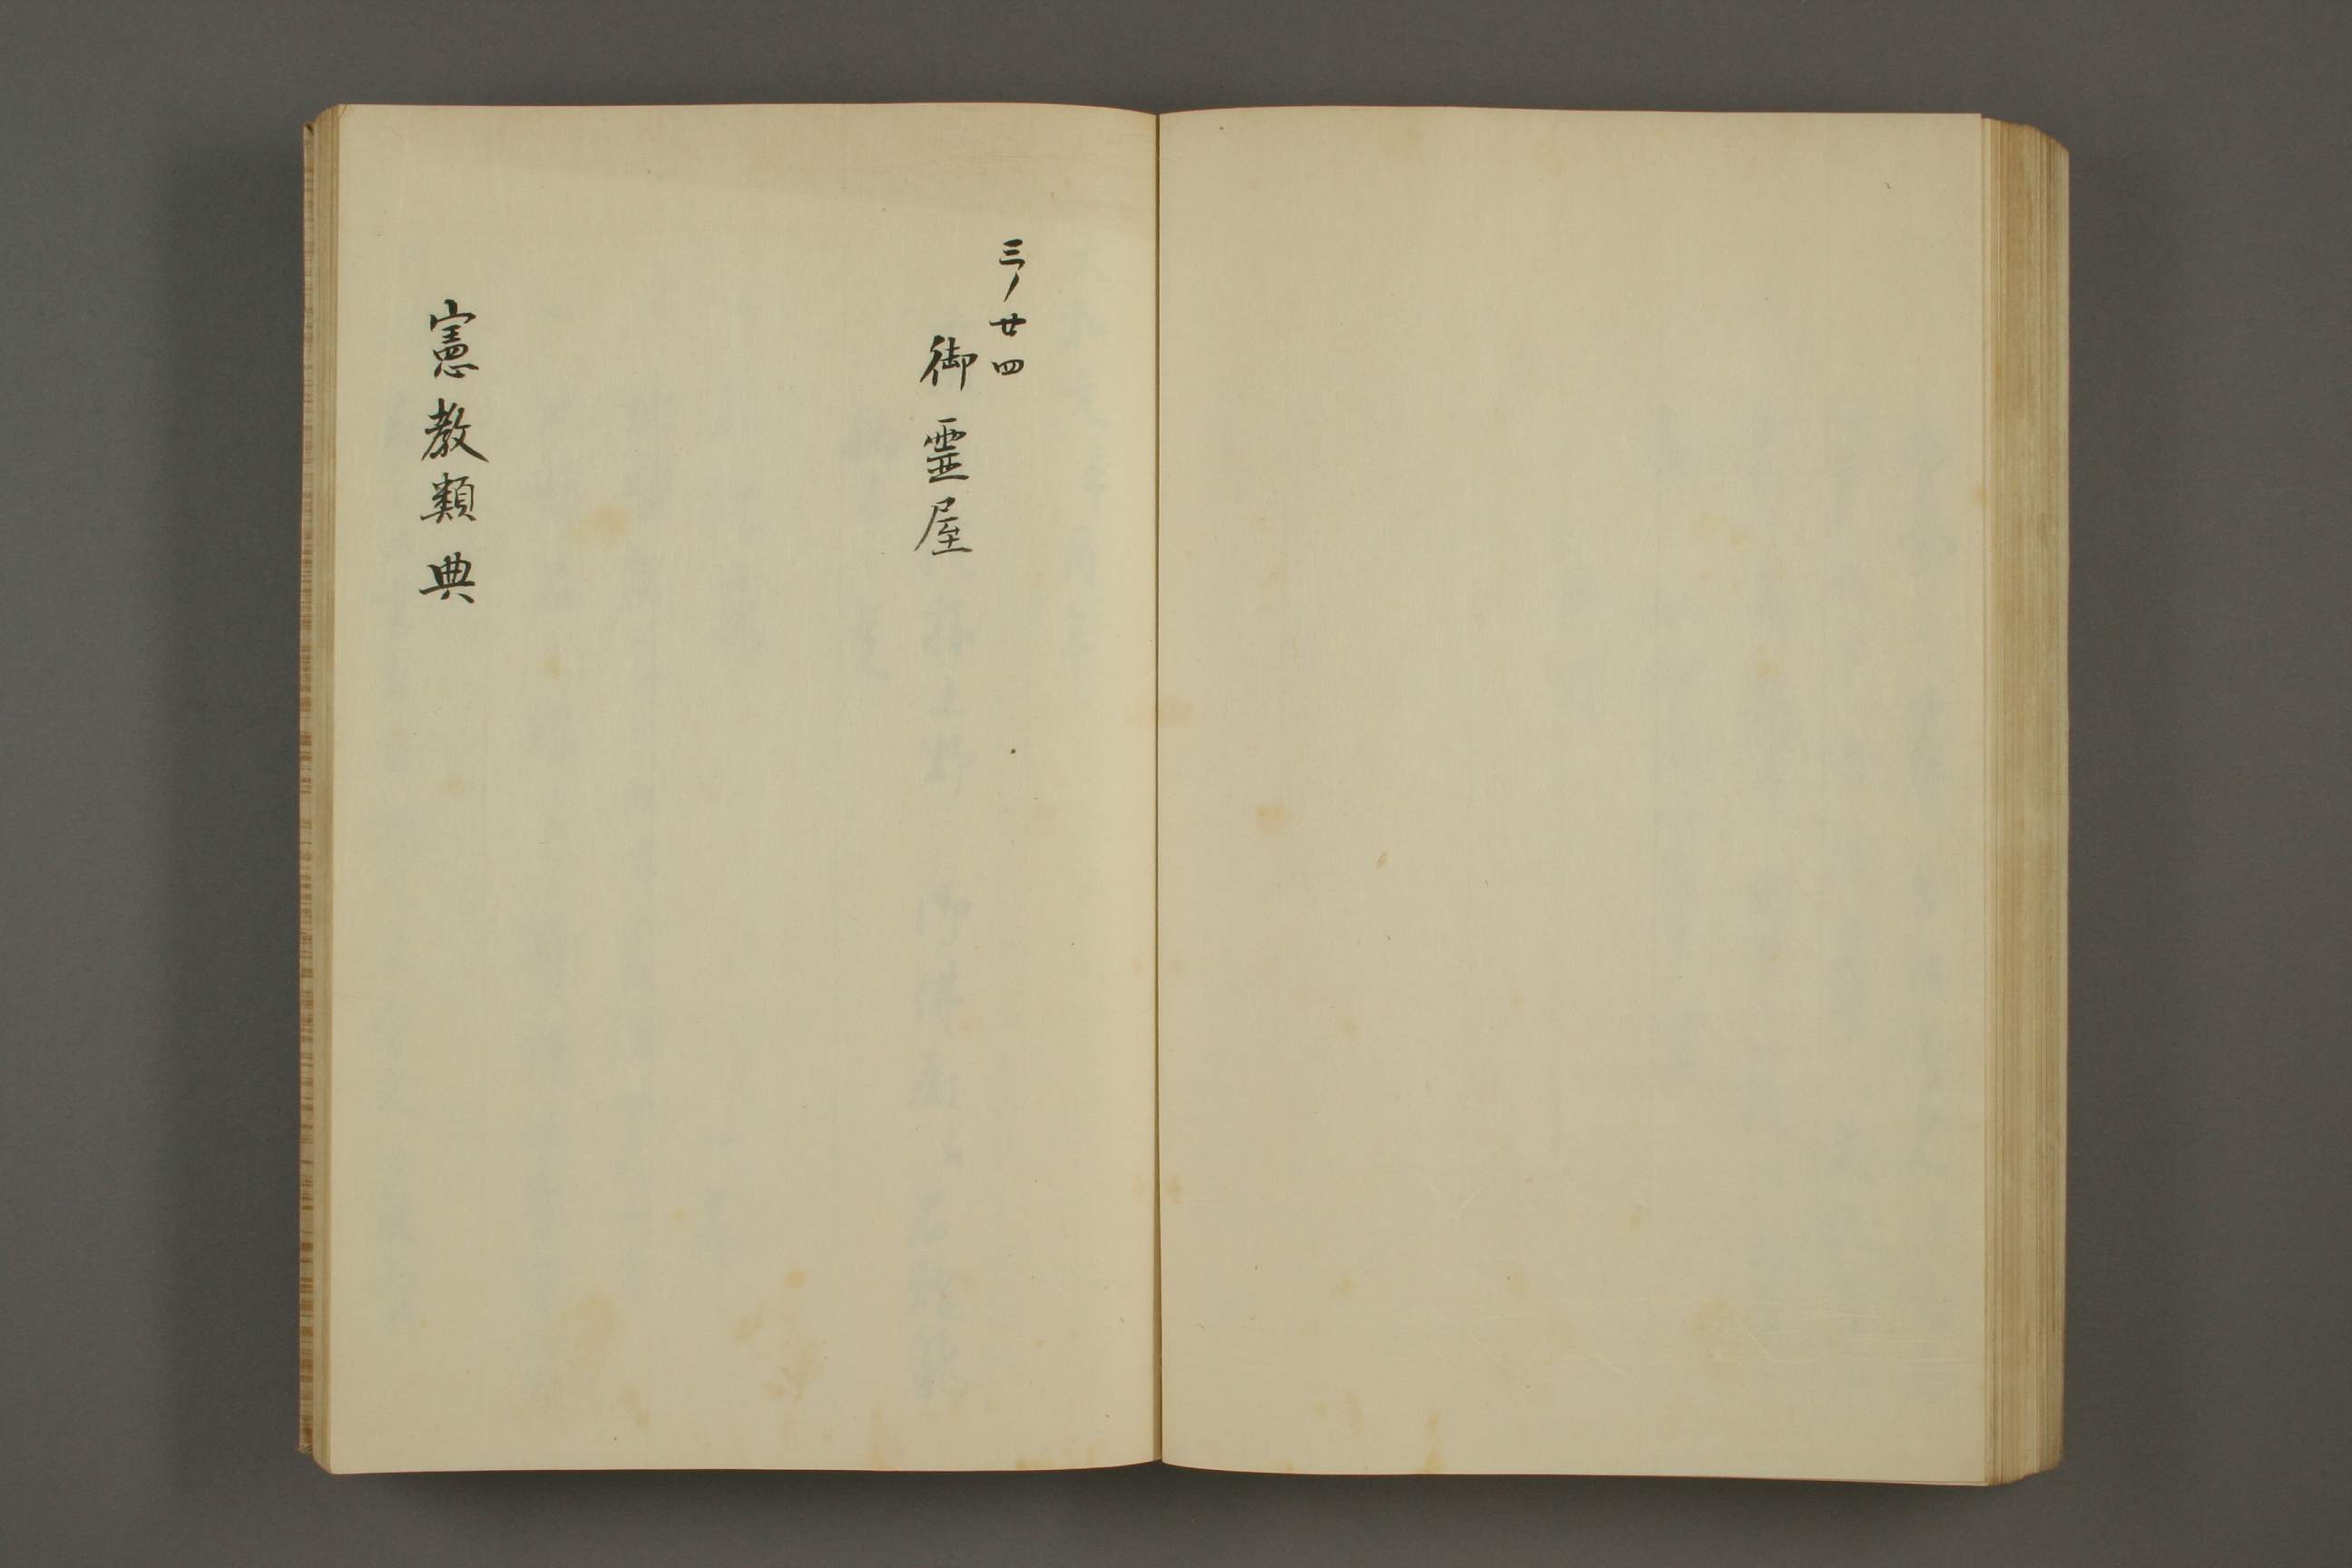 三ノ廿四
御霊屋
憲教類典